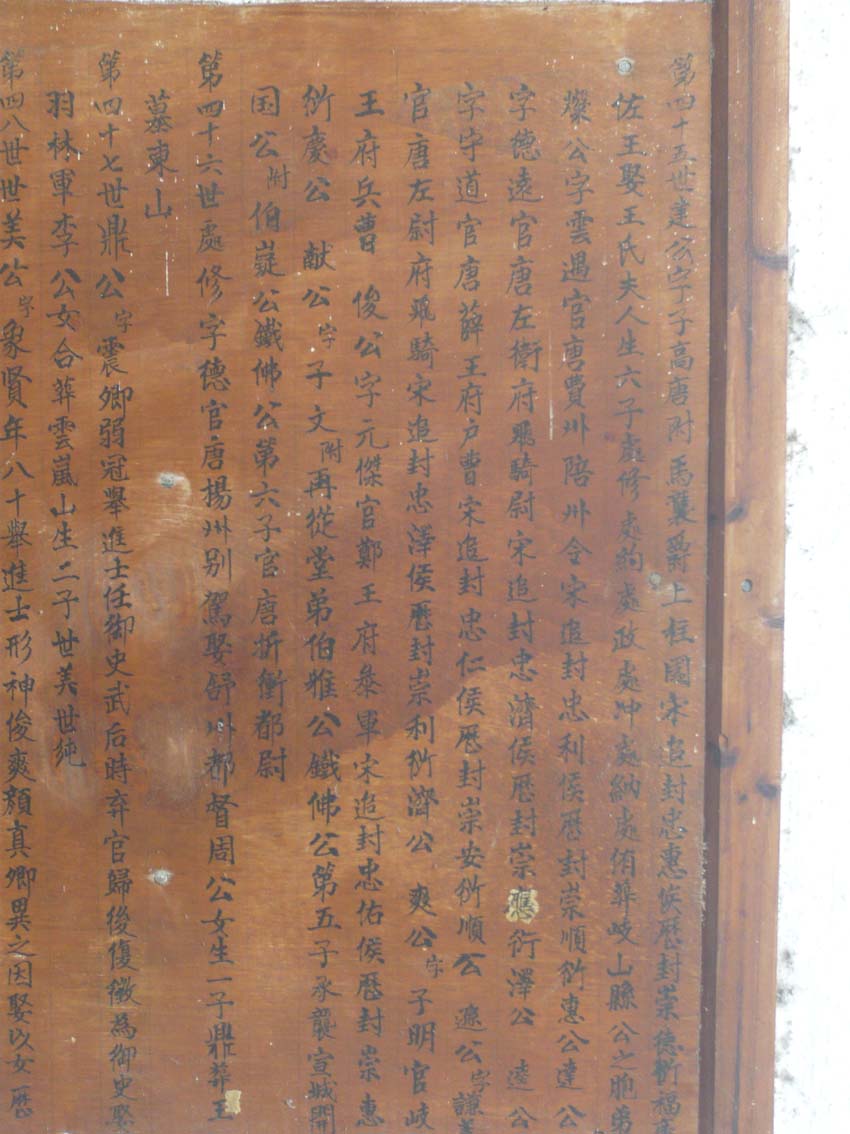 第四十五世建公字子高唐附馬襲爵上柱國宋追封忠惠侯歷封崇德衍福
佐王娶王氏夫人生六子處修處的處政處冲處納處侑葬岐山縣公之胞弟
燦公字雲遇官唐費州陪州令宋追封忠利侯歷封崇順衍惠公達公
字德遠官唐左衛府飛騎尉宋追封忠濟侯歷封崇應衍澤公 逵公
字守道官唐薛王府户曹宋追封忠仁侯歷封崇安衍順公 遜公字謙
官唐左尉府飛騎宋追封忠澤侯歷封崇利衍濟公 爽公字子明官岐
王府兵曹 俊公字元傑官鄭王府叅軍宋追封忠佑侯歷封崇惠
衍慶公 献公字子文附再從堂弟伯雅公鐵佛公第五子承襲宣城開
国公附伯嶷公鐵佛公第六子官唐折衝都尉
第四十六世處修字德官唐揚州别駕娶舒州都督周公女生一子鼎葬王
墓東山
第四十七世鼎公字震卿弱冠舉進士任御史武后時弃官歸後復徵為御史娶
羽林軍李公女合葬雲嵐山生二子世美世純
第四八世世美公字象賢年八十舉進士形神俊爽顏真卿異之因娶以女歷